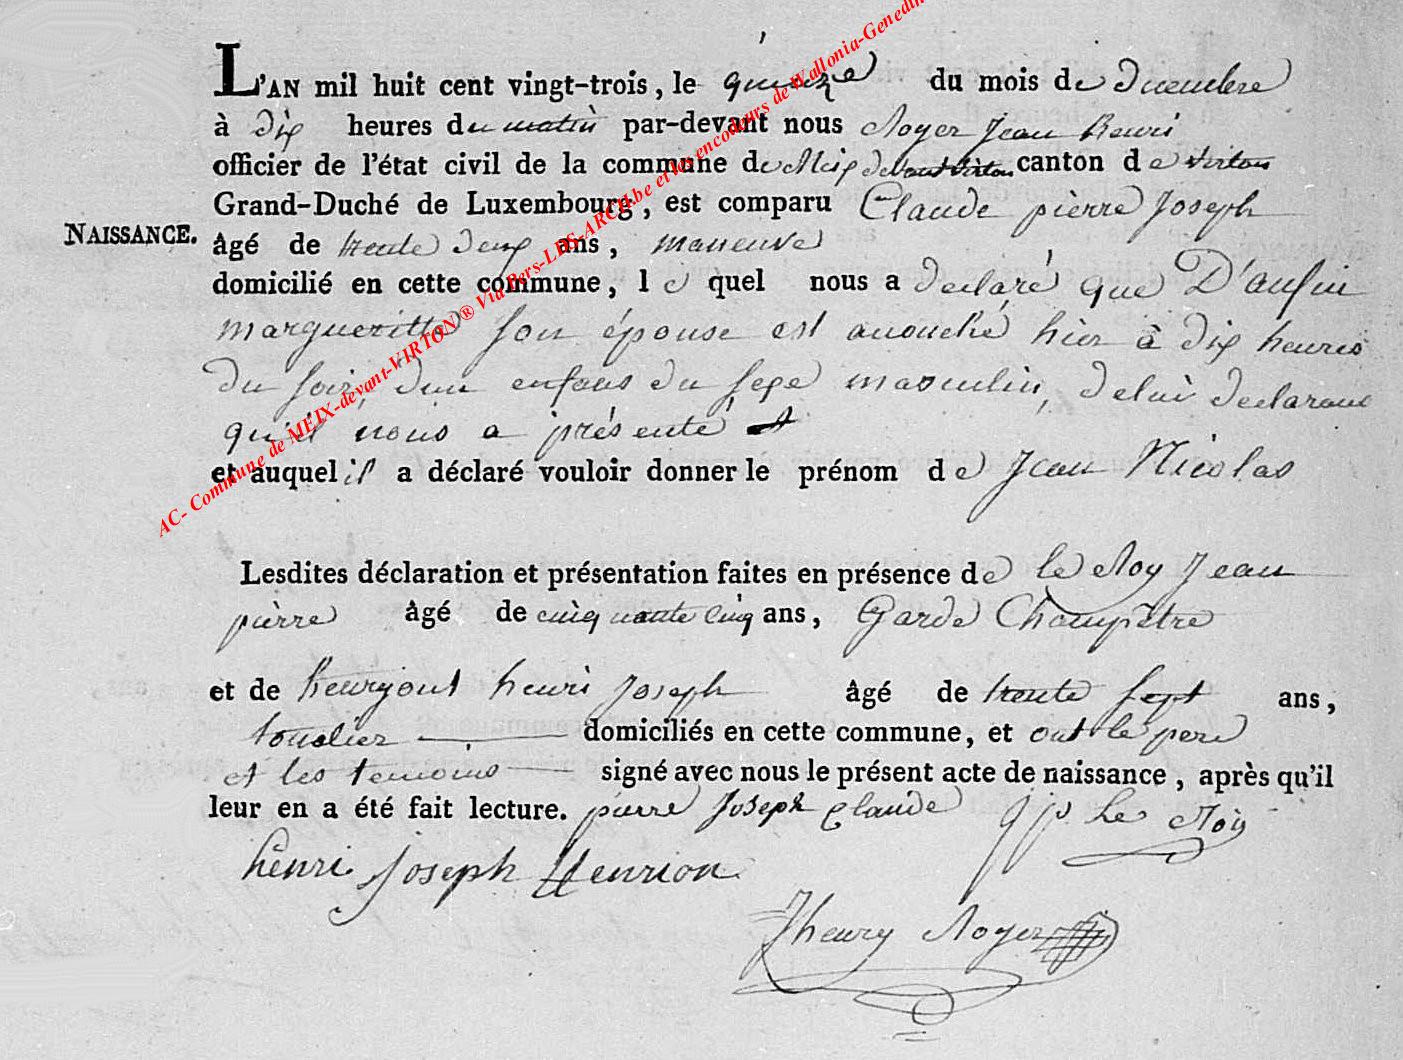 L'AN mil huit cent vingt-trois, le quinze du mois de Decembre
à dix heures du matin par-devant nous Royer Jean henri
officier de l'état civil de la commune de Meix devant virton canton de virton
Grand-Duché de Luxembourg, est comparu Claude pierre Joseph
NAISSANCE.
âgé de trente deux ans, maneuve
domicilié en cette commune, le quel nous a declaré que D'aufin
margueritte son épouse est acouché hier à dix heures
du soir, d'un enfans du sexe masculin, de lui declarant
qu'il nous a présenté et
et auquel il a déclaré vouloir donner le prénom de Jean Nicolas
Lesdites déclaration et présentation faites en présence de le Roy Jean
pierre âgé de cinquante cinq ans, Garde Champêtre
et de henri Joseph âgé de trente sept ans,
domiciliés en cette commune, et ont le pere
et les temoins signé avec nous le présent acte de naissance, après qu'il
leur en a été fait lecture. pierre Joseph Claude J p Le Roy
henri Joseph Henrion
Jhenry Royer
AC- Commune de MEIX-devant-VIRTON ® Via Pers-LDS-ARCH.be et les encodeurs de Wallonia-Genedin